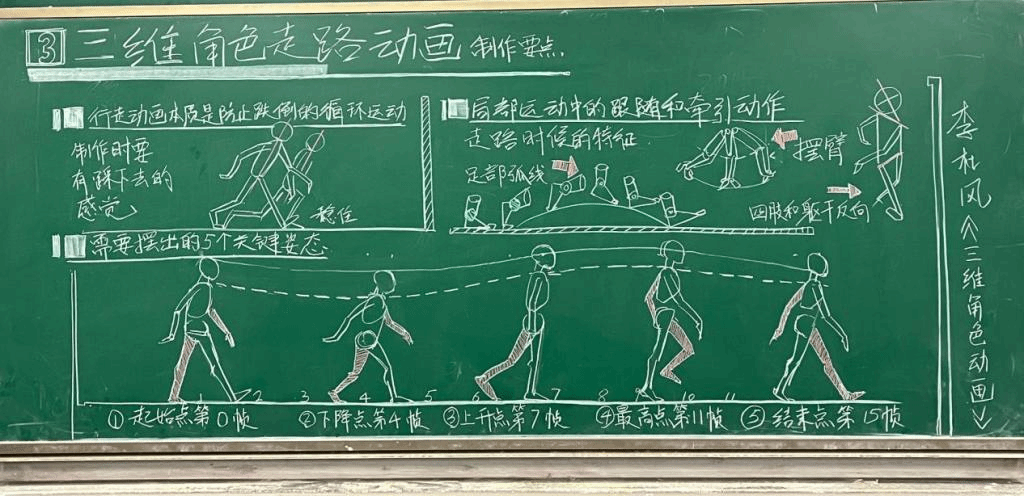 3 三维角色走路动画 制作要点.
行走动画本质是防止跌倒的循环运动
制作时要
有踩下去的
感觉
稳住
局部运动中的跟随和牵引动作
走路时候的特征.
足部弧线
摆臂
四肢和躯干反向
需要摆出的5个关键姿态.
1 2 3 4 5 6 7 8 10 11
①起始点第0帧
②下降点第4帧
③上升点第7帧
④最高点第11帧
⑤结束点第15帧
李札风《三维角色动画》